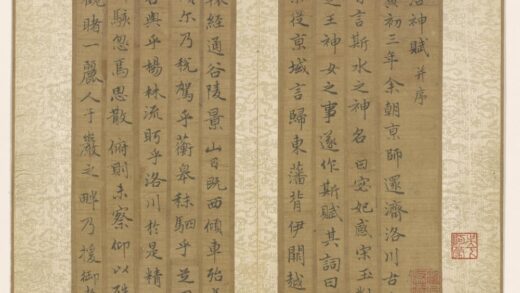 洛神賦 并序
黃初三年余朝京師還濟洛川古
言斯水之神名曰宓妃感宋玉對
王神女之事遂作斯賦其詞曰
從京域言歸東藩背伊闕越
轅經通谷陵景山日既西傾車殆
爾乃稅駕乎蘅皋秣駟乎芝田
容與乎楊林流眄乎洛川於是精
駭忽焉思散俯則未察仰以殊
觀睹一麗人于巖之畔乃援御者